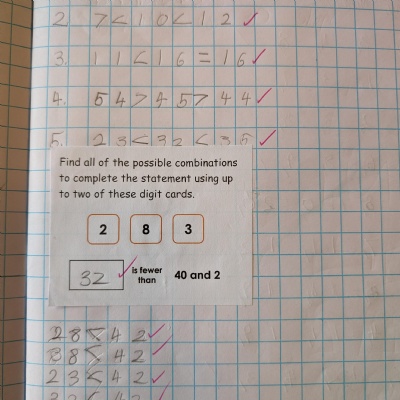 2. 7 < 10 < 12 ✓
3. 11 < 16 = 16 ✓
4. 54 > 45 > 44 ✓
5. 23 < 32 < 35 ✓
Find all of the possible combinations
to complete the statement using up
to two of these digit cards.
2 8 3
32 ✓ is fewer than 40 and 2
28 < 42 ✓
38 < 42 ✓
23 < 42 ✓
32 < 42 ✓